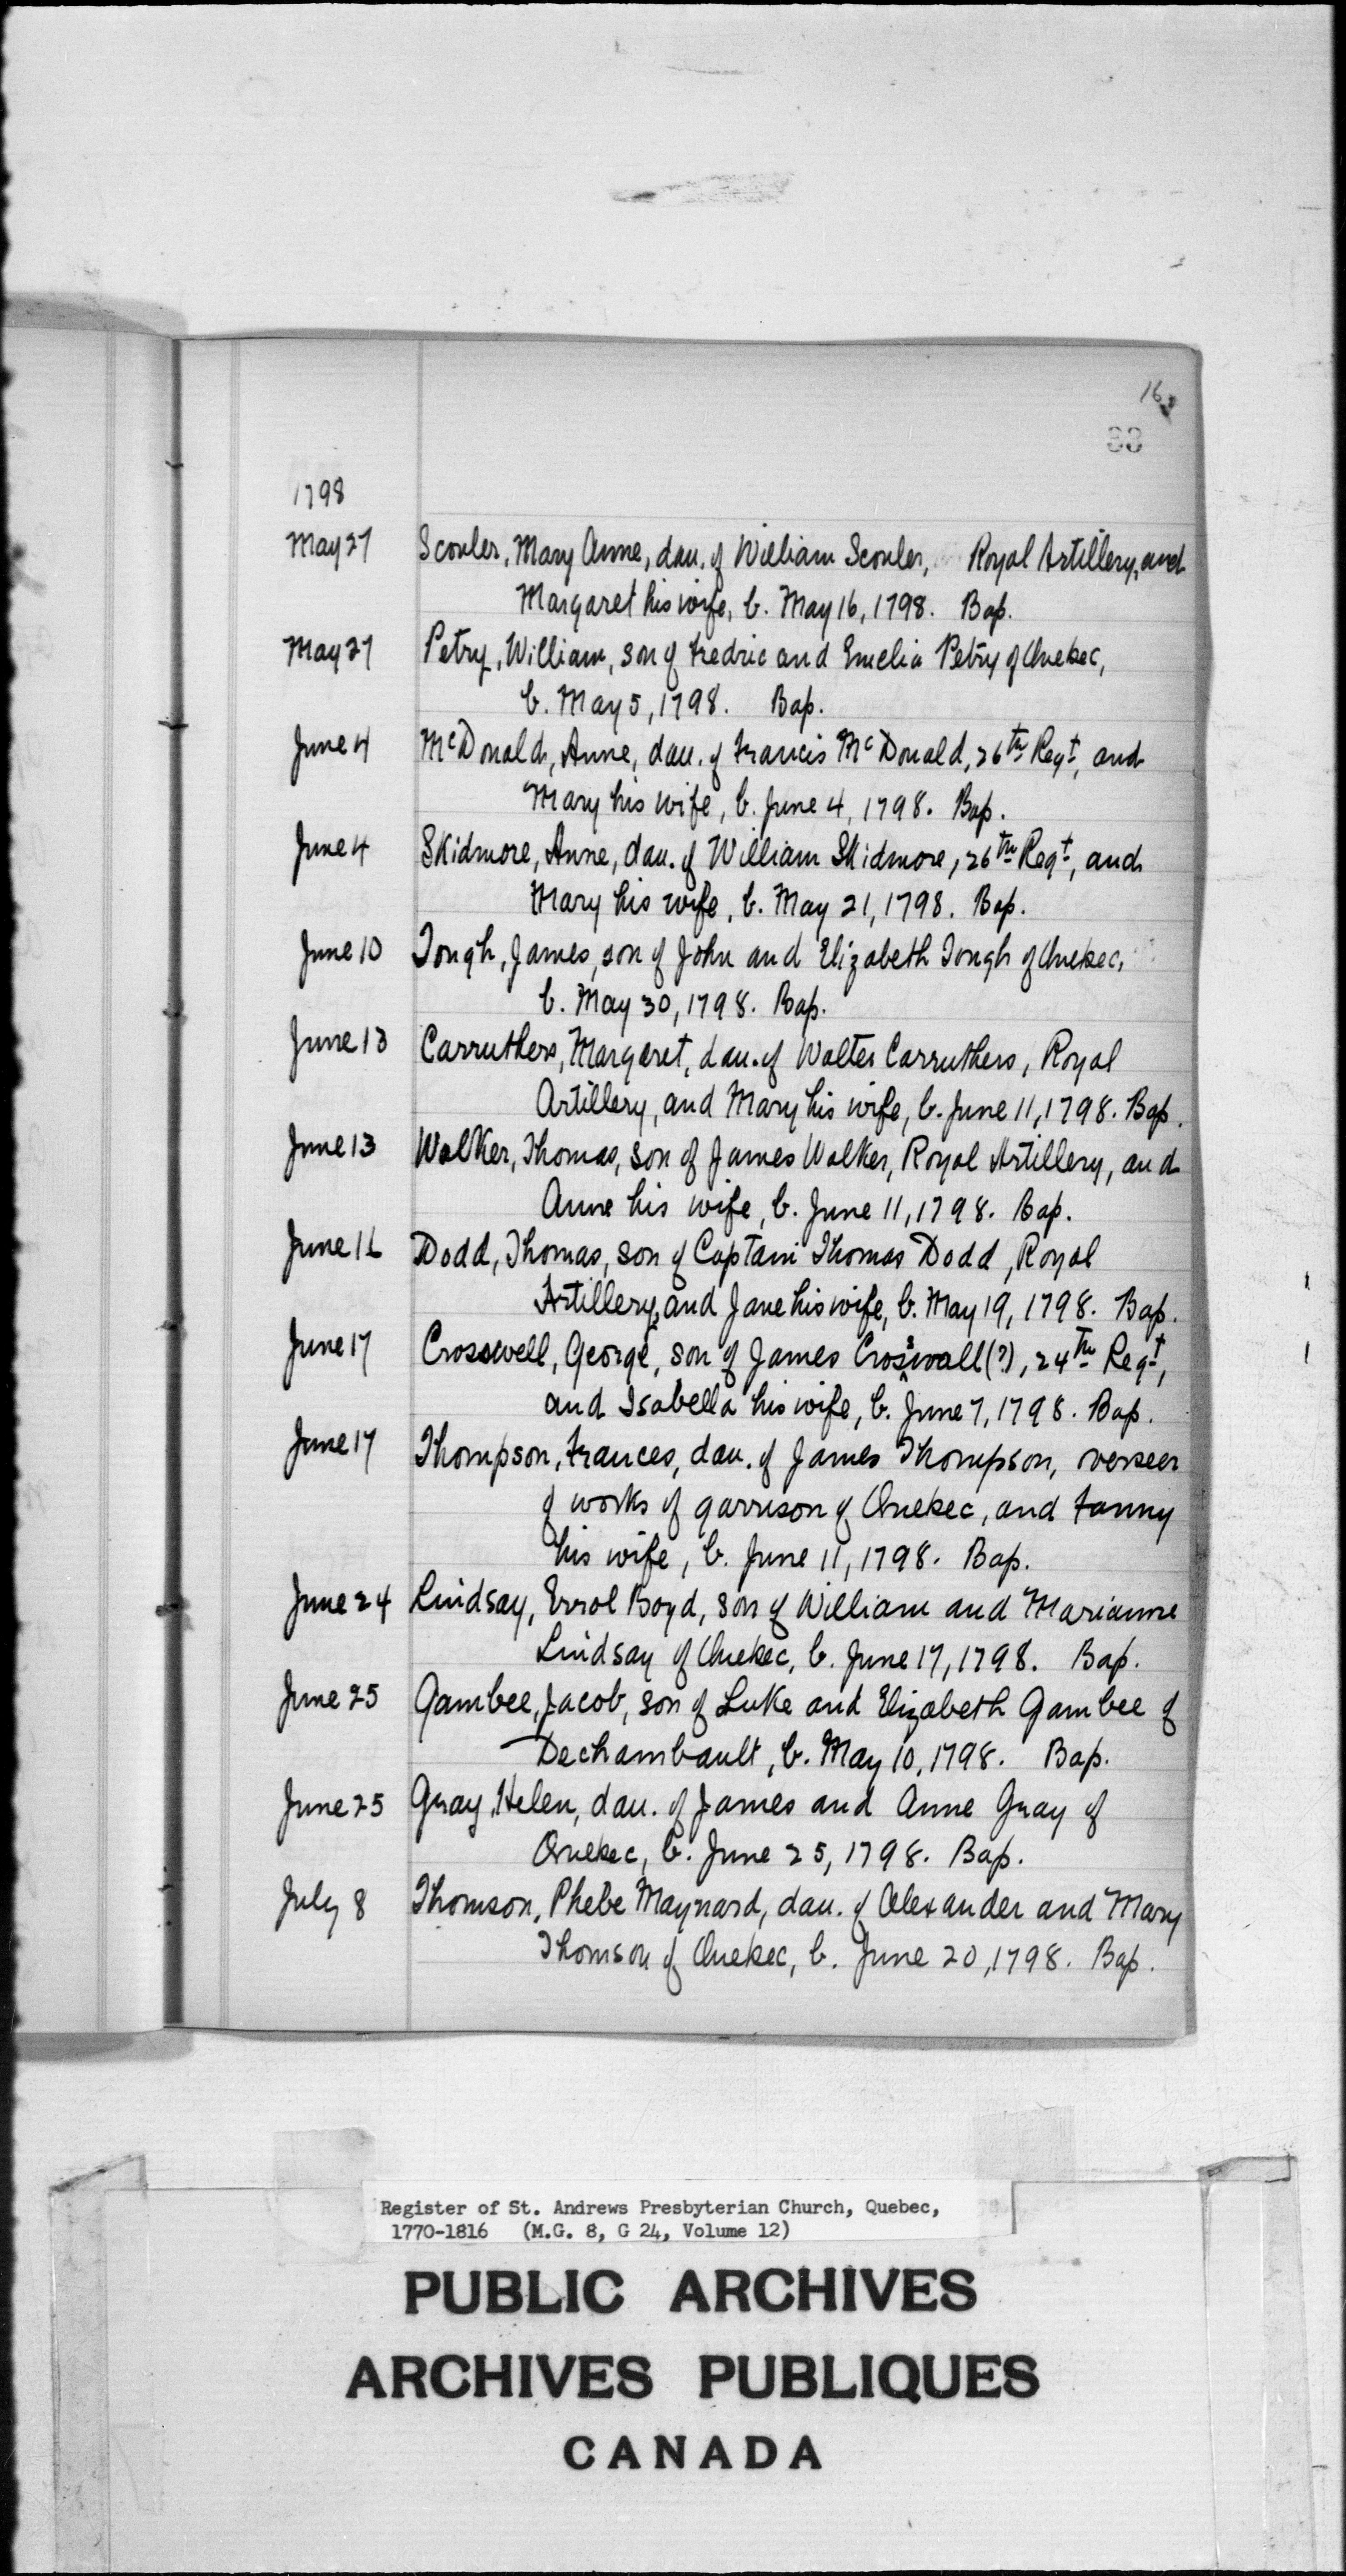 16
33
1798
May 27 Scouler, Mary Anne, dau. of William Scouler, Royal Artillery, and
Margaret his wife, b. May 16, 1798. Bap.
May 27 Petry, William, son of Fredric and Emelia Petry of Quebec,
b. May 5, 1798. Bap.
June 4 McDonald, Anne, dau. of Francis McDonald, 26th Regt, and
Mary his wife, b. June 4, 1798. Bap.
June 4 Skidmore, Anne, dau. of William Skidmore, 26th Regt, and
Mary his wife, b. May 21, 1798. Bap.
June 10 Tough, James, son of John and Elizabeth Tough of Quebec,
b. May 30, 1798. Bap.
June 13 Carruthers, Margaret, dau. of Walter Carruthers, Royal
Artillery, and Mary his wife, b. June 11, 1798. Bap.
June 13 Walker, Thomas, son of James Walker, Royal Artillery, and
Anne his wife, b. June 11, 1798. Bap.
June 16 Dodd, Thomas, son of Captain Thomas Dodd, Royal
Artillery, and Jane his wife, b. May 19, 1798. Bap.
June 17 Crosswell, George, son of James Crosswall (?), 24th Regt,
and Isabella his wife, b. June 7, 1798. Bap.
June 17 Thompson, Frances, dau. of James Thompson, overseer
of works of garrison of Quebec, and Fanny
his wife, b. June 11, 1798. Bap.
June 24 Lindsay, Errol Boyd, son of William and Marianne
Lindsay of Quebec, b. June 17, 1798. Bap.
June 25 Gambee, Jacob, son of Luke and Elizabeth Gambee of
Dechambault, b. May 10, 1798. Bap.
June 25 Gray, Helen, dau. of James and Anne Gray of
Quebec, b. June 25, 1798. Bap.
July 8 Thomson, Phebe Maynard, dau. of Alexander and Mary
Thomson of Quebec, b. June 20, 1798. Bap.
Register of St. Andrews Presbyterian Church, Quebec,
1770-1816 (M.G. 8, G 24, Volume 12)
PUBLIC ARCHIVES
ARCHIVES PUBLIQUES
CANADA